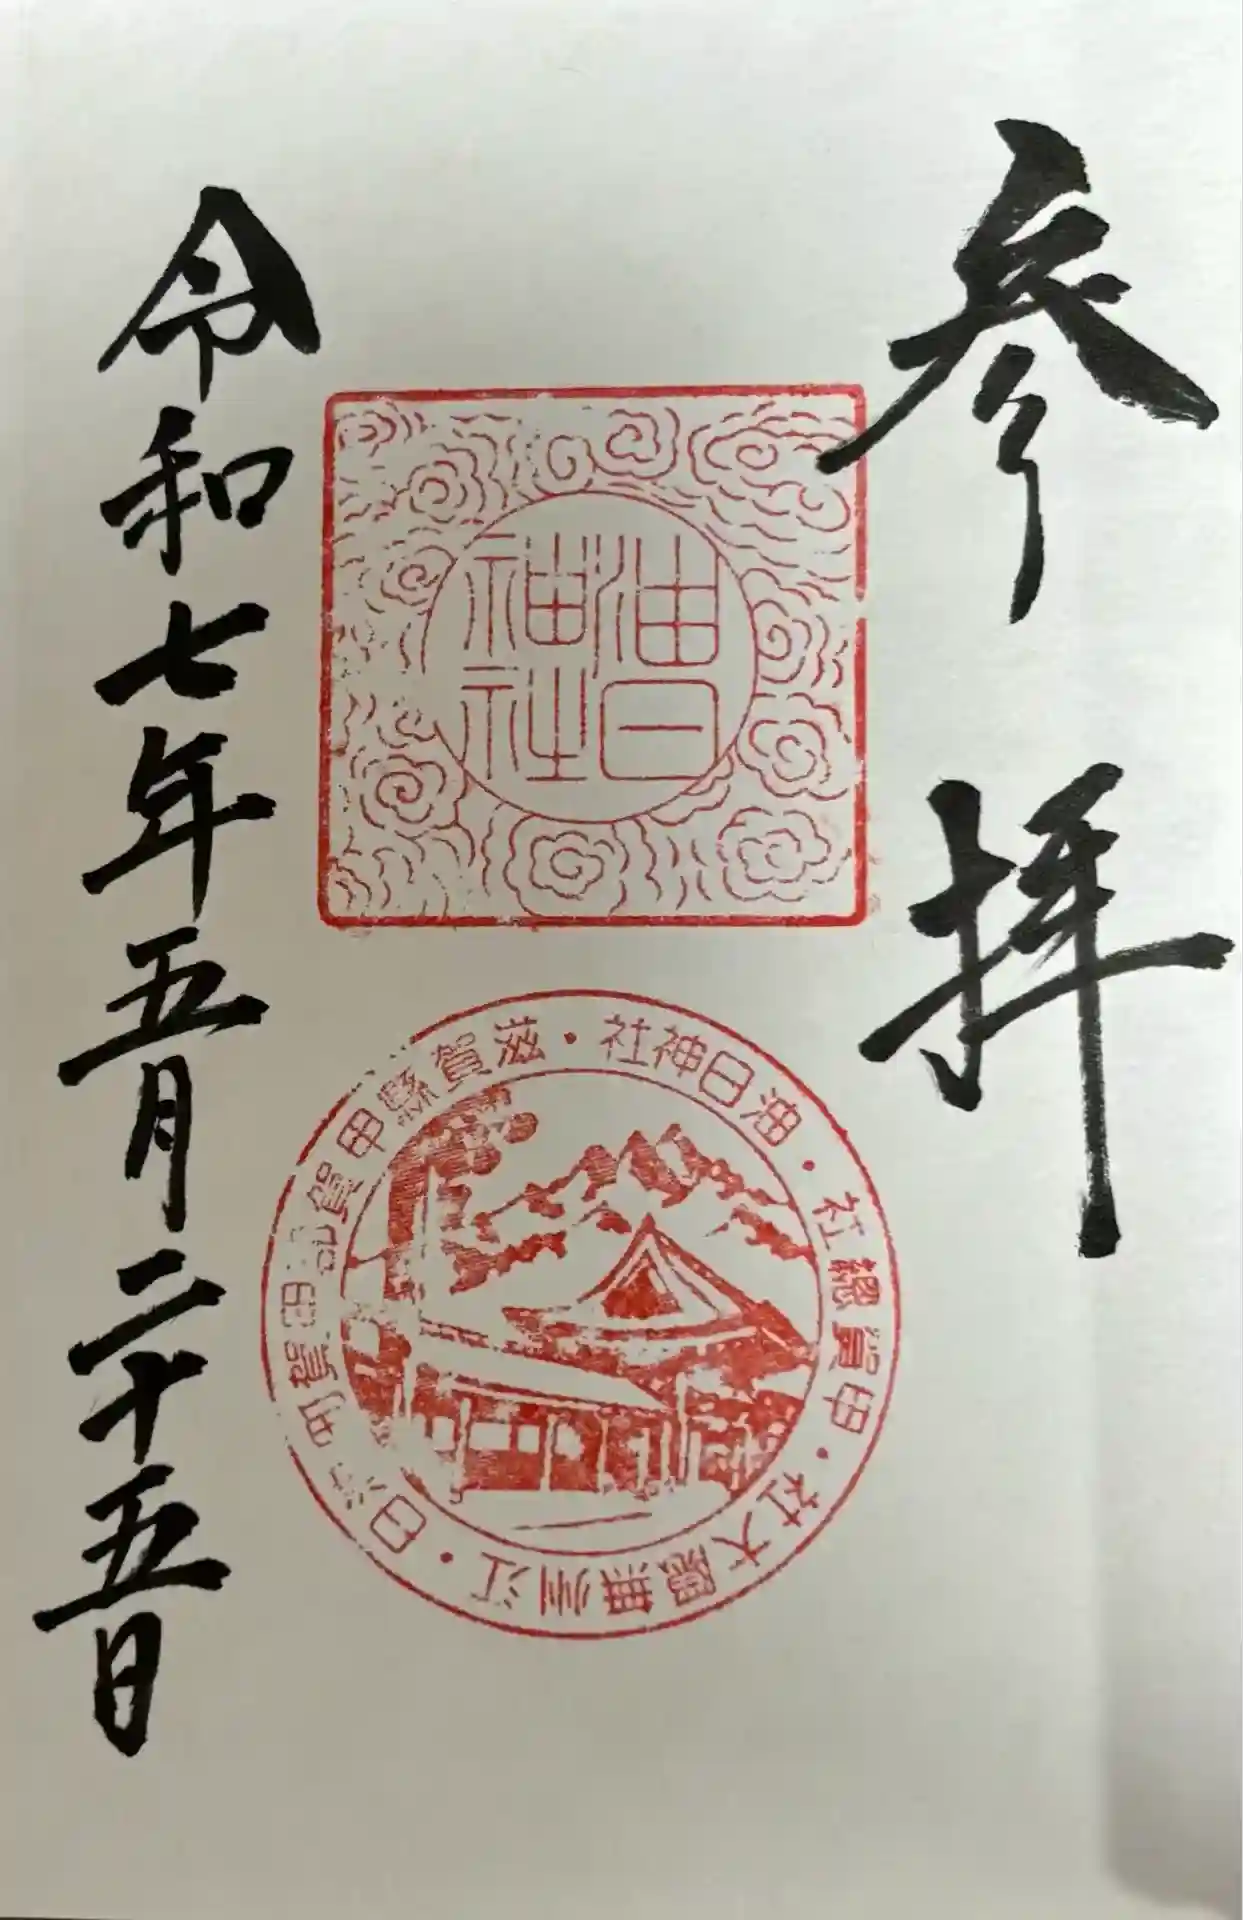 参拝
油日
神社
油日神社・滋賀縣甲賀郡甲賀町油日・江州無隠大社・甲賀總社・
令和七年五月二十五日